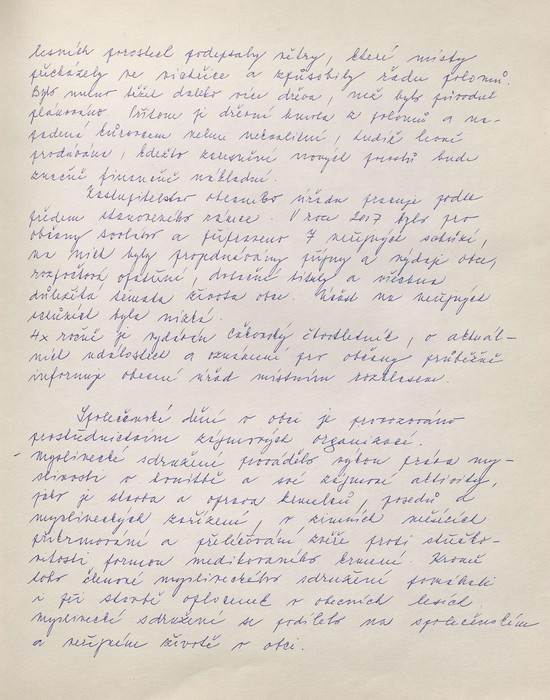 lesních porostech podepsaly větry, které místy
přecházely ve vichřice a způsobily řadu polomů.
Bylo nutno těžit daleko více dřeva, než bylo původně
plánováno. Přitom je dřevní hmota z polomů a na-
padená kůrovcem velmi nekvalitní, tudíž levně
prodávána, kdežto zalesnění nových porostů bude
značně finančně nákladné.
Zastupitelstvo obecního úřadu pracuje podle
předem stanoveného rámce. V roce 2017 bylo pro
občany svoláno a připraveno 7 veřejných schůzí,
na nich byly projednávány příjmy a výdaje obce,
rozpočtová opatření, dotační tituly a všechna
důležitá témata života obce. Účast na veřejných
schůzích byla nízká.
4x ročně je vydáván čtvrtletník, o aktuál-
ních událostech a oznámení pro občany průběžně
informuje obecní úřad místním rozhlasem.
Společenské dění v obci je provozováno
prostřednictvím zájmových organizací.
- Myslivecké sdružení provádělo výkon práva my-
slivosti v honitbě a své zájmové aktivity,
jako je stavba a oprava krmelců, posedů a
mysliveckých zařízení, v zimních měsících
přikrmování a přeléčování zvěře proti střečko-
vitosti formou medikovaného krmení. Kromě
toho členové mysliveckého sdružení pomáhali
i při stavbě oplocenek v obecních lesích.
Myslivecké sdružení se podílelo na společenském
a veřejném životě v obci.